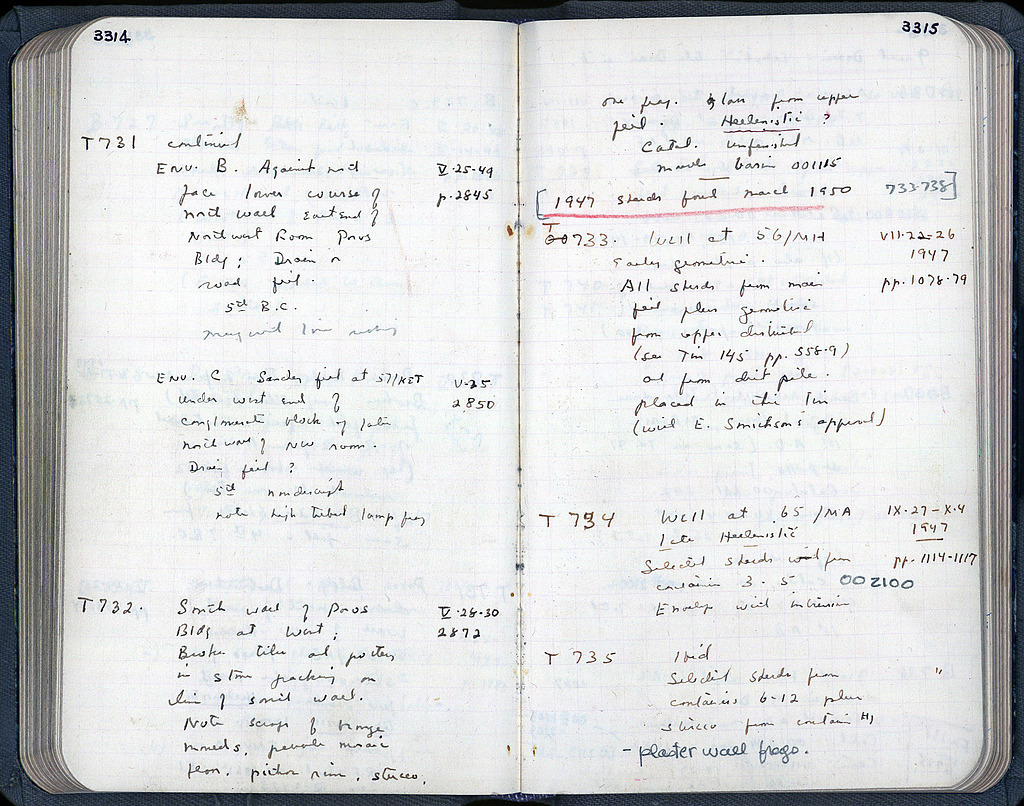 3314
T 731 continued
Env. B. Against north V-25-49
face lower course of p. 2845
north wall East end of
Northwest Room Poros
Bldg; Drain or
road fill.
5th B.C.
Env. C Sandy fill at 57/KET V-25
under west end of 2850
conglomerate block of later
north wall of NW room
Drain fill ?
5th nondescript
note high tubed lamp frag
T 732. South wall of Poros V-28-30
Bldg at West; 2872
Broken tiles and pottery
in stone packing on
line of south wall.
Note scraps of bronze
moulds, pebble mosaic
floor, pithos rim, stucco.
3315
one frag. glass from upper
fill Hellenistic ?
Catal. unfinished
marble basin 001115
[1947 sherds found March 1950 733-738]
T 733. Well at 56/MH VII-22-26
Early geometric. 1947
All sherds from main pp. 1078-79
fill plus geometric
from upper disturbed
(see Tin 145 pp. 558-9)
and from dirt pile.
placed in this Tin
(with E. Smithson's approval)
T 734 Well at 65/MA IX-27-X-4
Late Hellenistic 1947
Selected sherds from pp. 1114-1117
container 3-5 002100
Envelope with intrusion
T 735 Ibid
Selected sherds from "
containers 6-12 plus
stucco from container #1
- plaster wall frags.